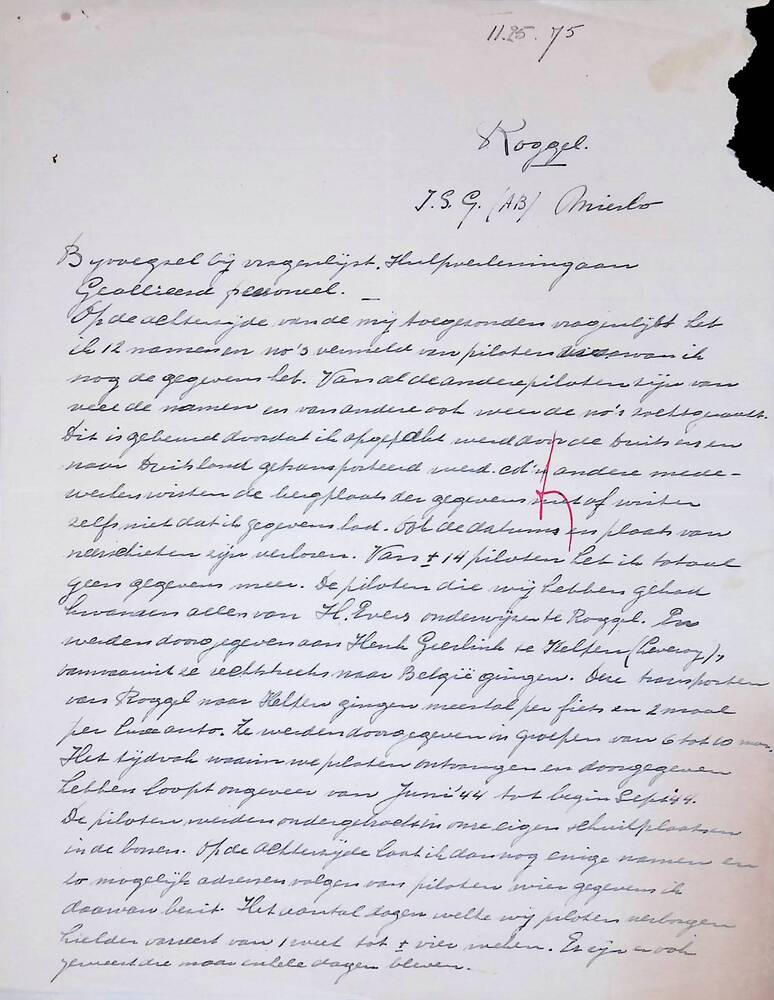 11.25.75
Roggel.
I.S.G. (AB) Mierlo
Byvoegsel bij vragenlijst. Hulpverlening aan
Geallieerd personeel. —
Op de achterzijde van de mij toegezonden vragenlijst heb
ik 12 namen en no's vermeld van piloten waarvan ik
nog de gegevens heb. Van al de andere piloten zijn van
veel de namen en van andere ook weer de no's zoekgeraakt.
Dit is gebeurd doordat ik opgepakt werd door de Duitsers en
naar Duitsland getransporteerd werd. andere mede-
werkers wisten de bergplaats der gegevens niet of wisten
zelfs niet dat ik gegevens had. Ook de datums en plaats van
neerschieten zijn verloren. Van ± 14 piloten heb ik totaal
geen gegevens meer. De piloten die wij hebben gehad
kwamen alles van H. Evers onderwijzer te Roggel. En
werden doorgegeven aan Henk Geerlick te Kelpen (Leveroy),
vanwaaruit ze rechtstreeks naar België gingen. Deze transporten
van Roggel naar Kelpen gingen meestal per fiets en 2 maal
per luxe auto. Ze werden doorgegeven in groepen van 6 tot 10 man.
Het tijdvak waarin we piloten ontvangen en doorgegeven
hebben loopt ongeveer van Juni '44 tot begin Sept '44.
De piloten werden ondergebracht in onze eigen schuilplaatsen
in de bossen. Op de achterzijde laat ik dan nog enige namen en
zo mogelijk adressen volgen van piloten wier gegevens ik
daarvan bezit. Het aantal dagen welke wij piloten verborgen
hielden varieert van 1 week tot ± vier weken. Er zijn er ook
geweest die maar enkele dagen bleven.